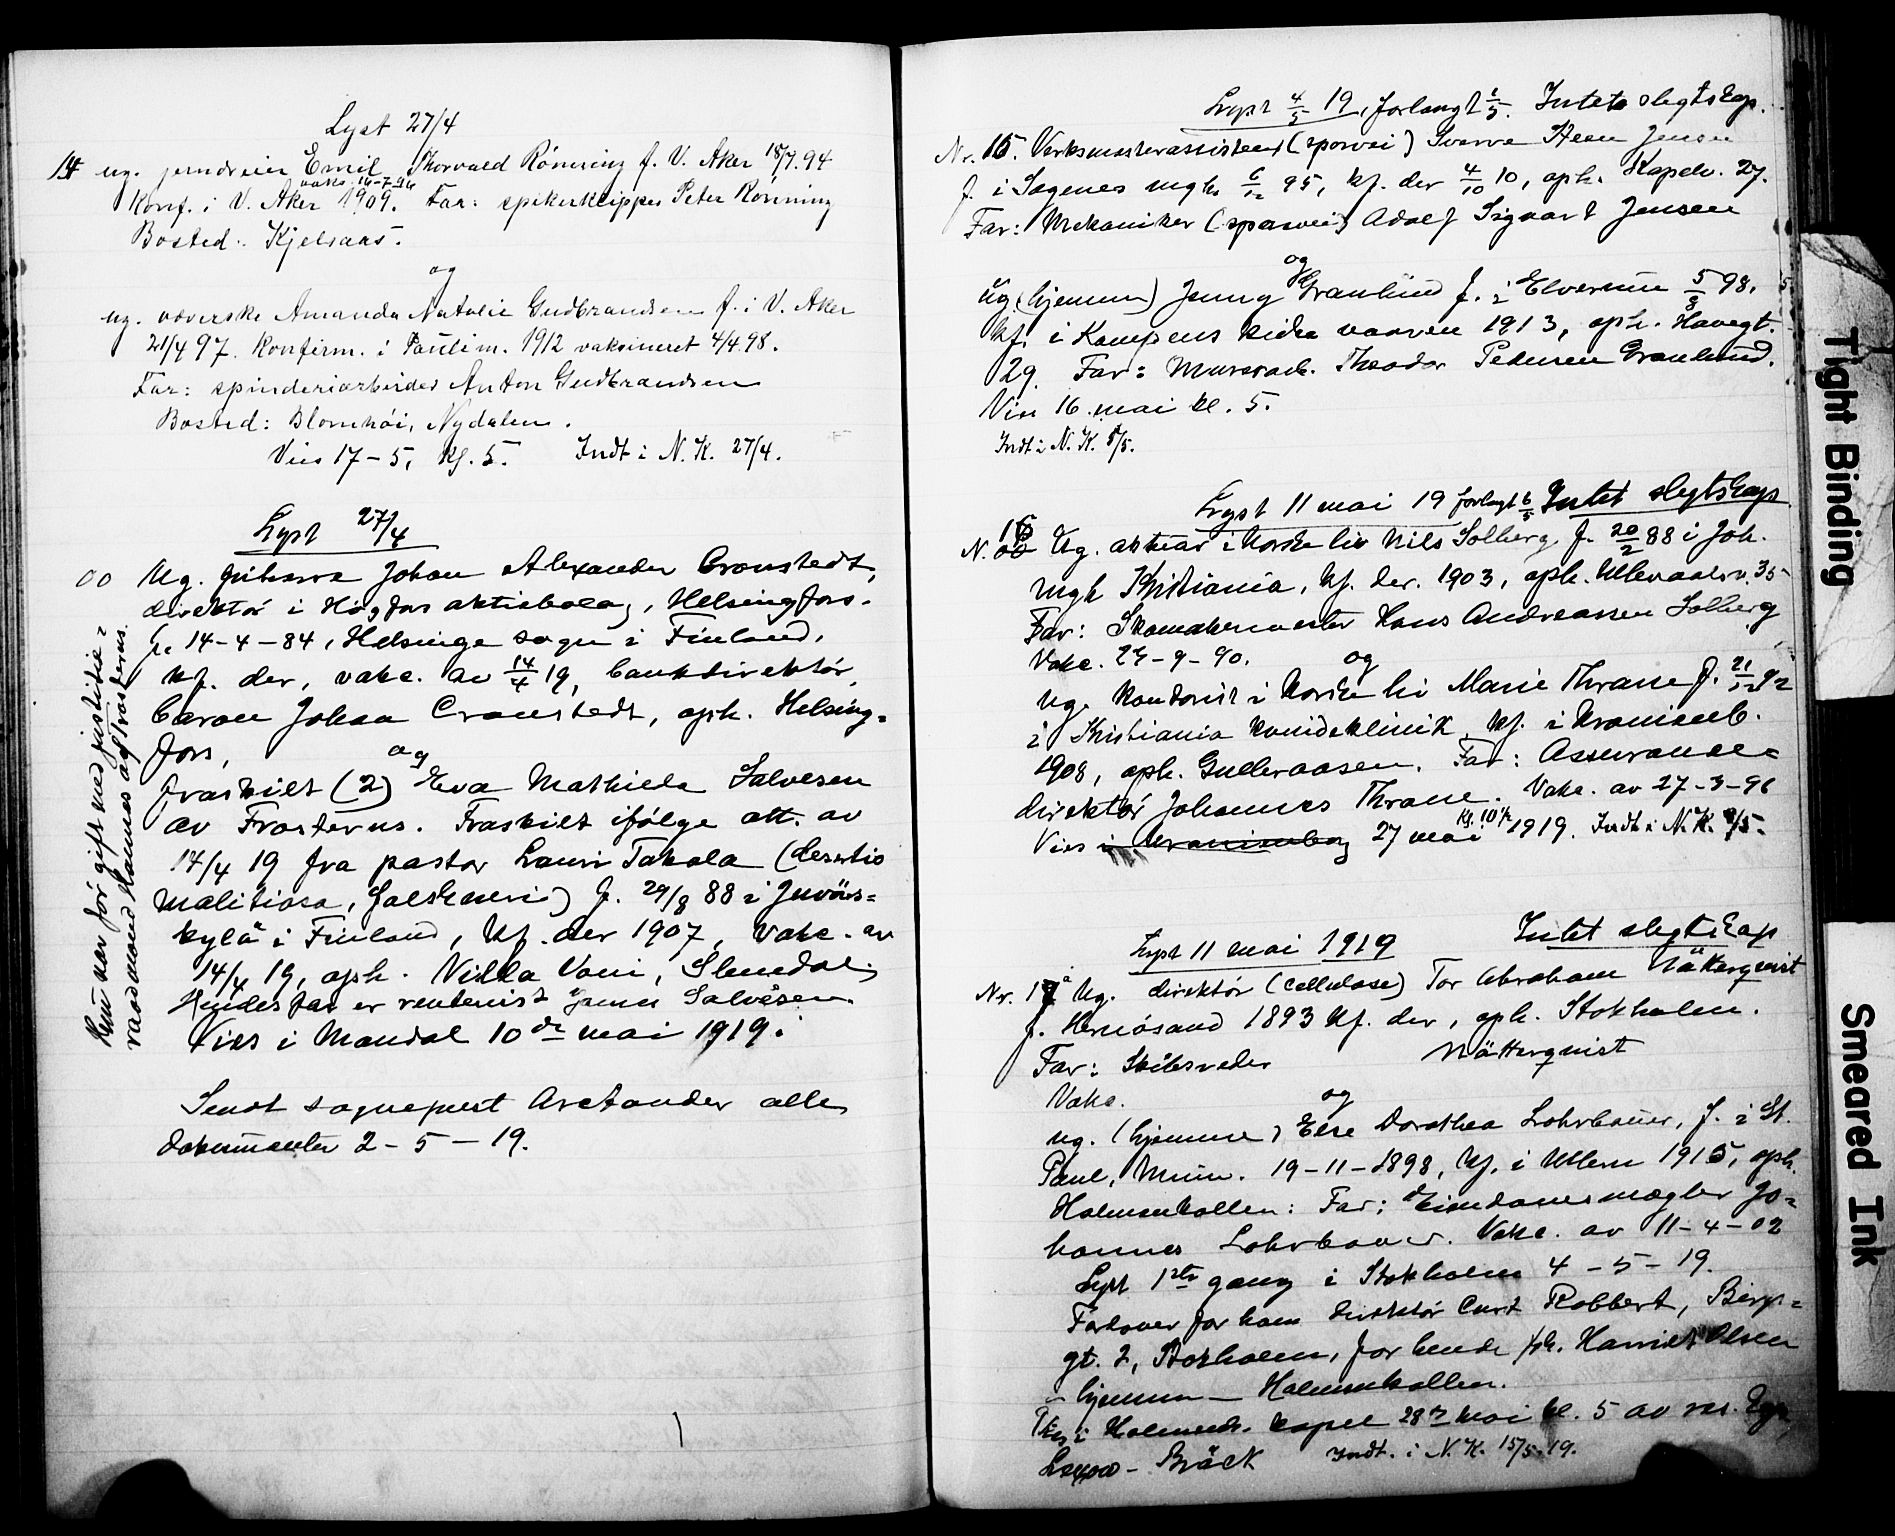 Lyst 27/4
14 ug. jerndreier Emil Thorvald Rönning f. V. Aker 15/7.94
vaks. 16-7-96
Konf. i V. Aker 1909. Far: spikerklipper Peter Rönning
Bosted: Kjelsaas.
og
ug. væverske Amanda Natalie Gudbrandsen f. i V. Aker
21/4 97. Konfirm. i Paulim. 1912 vaksineret 4/4.98.
Far: spinderiarbeider Anton Gudbrandsen
Bosted: Blomhöi, Nydalen.
Vies 17-5, kl. 5. Indt i N. K. 27/4.
Lyst 27/4
00 Ug. Johan Alexander Cronstedt,
direktör i Högfors aktiebolag, Helsingfors.
f. 14-4-84, Helsinge sogn i Finland,
kf. der, vakc. av 14/4 19, bankdirektör,
baron Johan Cronstedt, oph. Helsing-
fors,
og
fraskilt (2) Eva Mathilda Salvesen
av Frosterus. Fraskilt ifölge att. av
14/4 19 fra pastor Lauri Takala (desertio
malitiosa, ) f. 29/8 88 i Jyväs-
kylä i Finland, kf. der 1907, vakc. av
14/4 19, oph. Villa Voni, Slemdal.
Hendes far er rentenist James Salvesen.
Vies i Mandal 10de mai 1919.
Hun var för gift med justitie-
raadmand Hannes af Frosterus.
Sendt sogneprest Arctander alle
dokumenter 2-5-19.
Lyst 4/5 19, forlangt 1/5. Intet slegtskap.
Nr. 15. Verksmesterassistent (sporvei) Sverre Steen Jensen
f. i Sagenes mgh. 6/12 95, kf. der 4/10 10, oph. Kapelv. 27.
Far: Mekaniker (sporvei) Adolf Sigvart Jensen
og
Ug. (hjemme) Jenny Granlund f. i Elverum 5/8 98.
kf. i Kampens kirke vaaren 1913, oph. Havegt.
29. Far: Murerarb. Theodor Pedersen Granlund.
Vies 16. mai kl. 5.
Indt i N. K. 5/5.
Lyst 11 mai 19 forlangt 6/5 Intet slegtskap
N. 16 Ug. aktuar i Norske liv Nils Solberg f. 20/2 88 i Joh.
mgh Kristiania, kf. der. 1903, oph. Ullevaalsv. 35
Far: Skomakermester Hans Andreassen Solberg
Vakc. 24-9-90.
og
ug. kontorist i Norske liv Marie Thrane f. 21/12 92
i Kristiania kvindeklinik, kf. i Uranienb.
1908, oph. Gulleraasen. Far: Assurance-
direktör Johannes Thrane. Vakc. av 27-3-96
Vies i Uranienborg 27 mai kl. 10½ 1919. Indt i N. K. 9/5.
Lyst 11 mai 1919 Intet slegtskap
Nr. 17 Ug. direktör (cellulose) Tor Abraham Nätterqvist
f. Hernösand 1893 kf. der, oph. Stokholm.
Far: Skibsreder Nätterqvist
Vakc.
og
ug. (hjemme) Else Dorothea Lohrbauer, f. i St.
Paul, Minn. 19-11-1898, kf. i Ullern 1915, oph.
Holmenkollen: Far: Eiendomsmægler Jo-
hannes Lohrbauer. Vakc. av 11-4-02
Lyst 1ste gang i Stokholm 4-5-19.
Forlover for ham direktör Curt Robbert, Birger
gt. 2, Stokholm, for hende frk. Harriet Olsen
– hjemme – Holmenkollen.
Vies i Holmenk. kapel 28de mai kl. 5 av res. kap.
Lexow - Bräck Indt. i N. K. 15/5.19.
Tight Binding
Smeared Ink